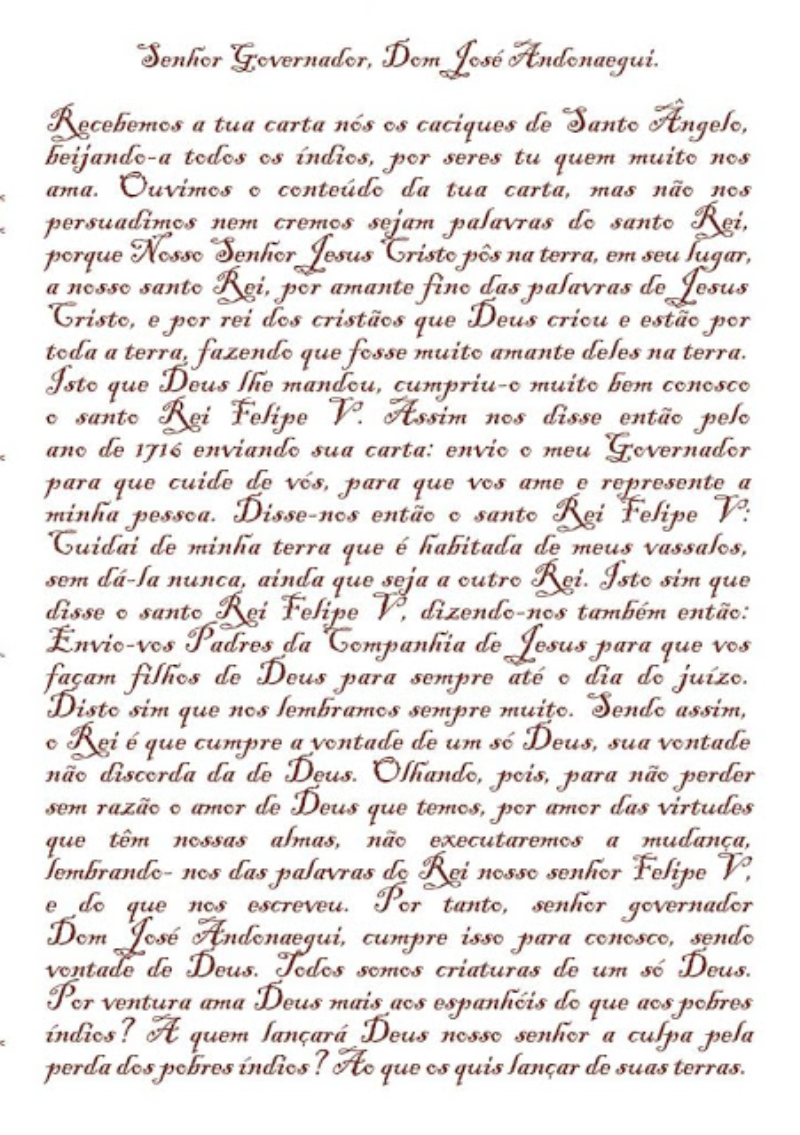 Senhor Governador, Dom José Andonaegui.
Recebemos a tua carta nós os caciques de Santo Ângelo,
beijando-a todos os índios, por seres tu quem muito nos
ama. Ouvimos o conteúdo da tua carta, mas não nos
persuadimos nem cremos sejam palavras do santo Rei,
porque Nosso Senhor Jesus Cristo pôs na terra, em seu lugar,
a nosso santo Rei, por amante fino das palavras de Jesus
Cristo, e por rei dos cristãos que Deus criou e estão por
toda a terra, fazendo que fosse muito amante deles na terra.
Isto que Deus lhe mandou, cumpriu-o muito bem conosco
o santo Rei Felipe V. Assim nos disse então pelo
ano de 1716 enviando sua carta: envio o meu Governador
para que cuide de vós, para que vos ame e represente a
minha pessoa. Disse-nos então o santo Rei Felipe V:
Cuidai de minha terra que é habitada de meus vassalos,
sem dá-la nunca, ainda que seja a outro Rei. Isto sim que
disse o santo Rei Felipe V, dizendo-nos também então:
Envio-vos Padres da Companhia de Jesus para que vos
façam filhos de Deus para sempre até o dia do juízo.
Disto sim que nos lembramos sempre muito. Sendo assim,
o Rei é que cumpre a vontade de um só Deus, sua vontade
não discorda da de Deus. Olhando, pois, para não perder
sem razão o amor de Deus que temos, por amor das virtudes
que têm nossas almas, não executaremos a mudança,
lembrando- nos das palavras do Rei nosso senhor Felipe V,
e do que nos escreveu. Por tanto, senhor governador
Dom José Andonaegui, cumpre isso para conosco, sendo
vontade de Deus. Todos somos criaturas de um só Deus.
Por ventura ama Deus mais aos espanhóis do que aos pobres
índios? A quem lançará Deus nosso senhor a culpa pela
perda dos pobres índios? Ao que os quis lançar de suas terras.